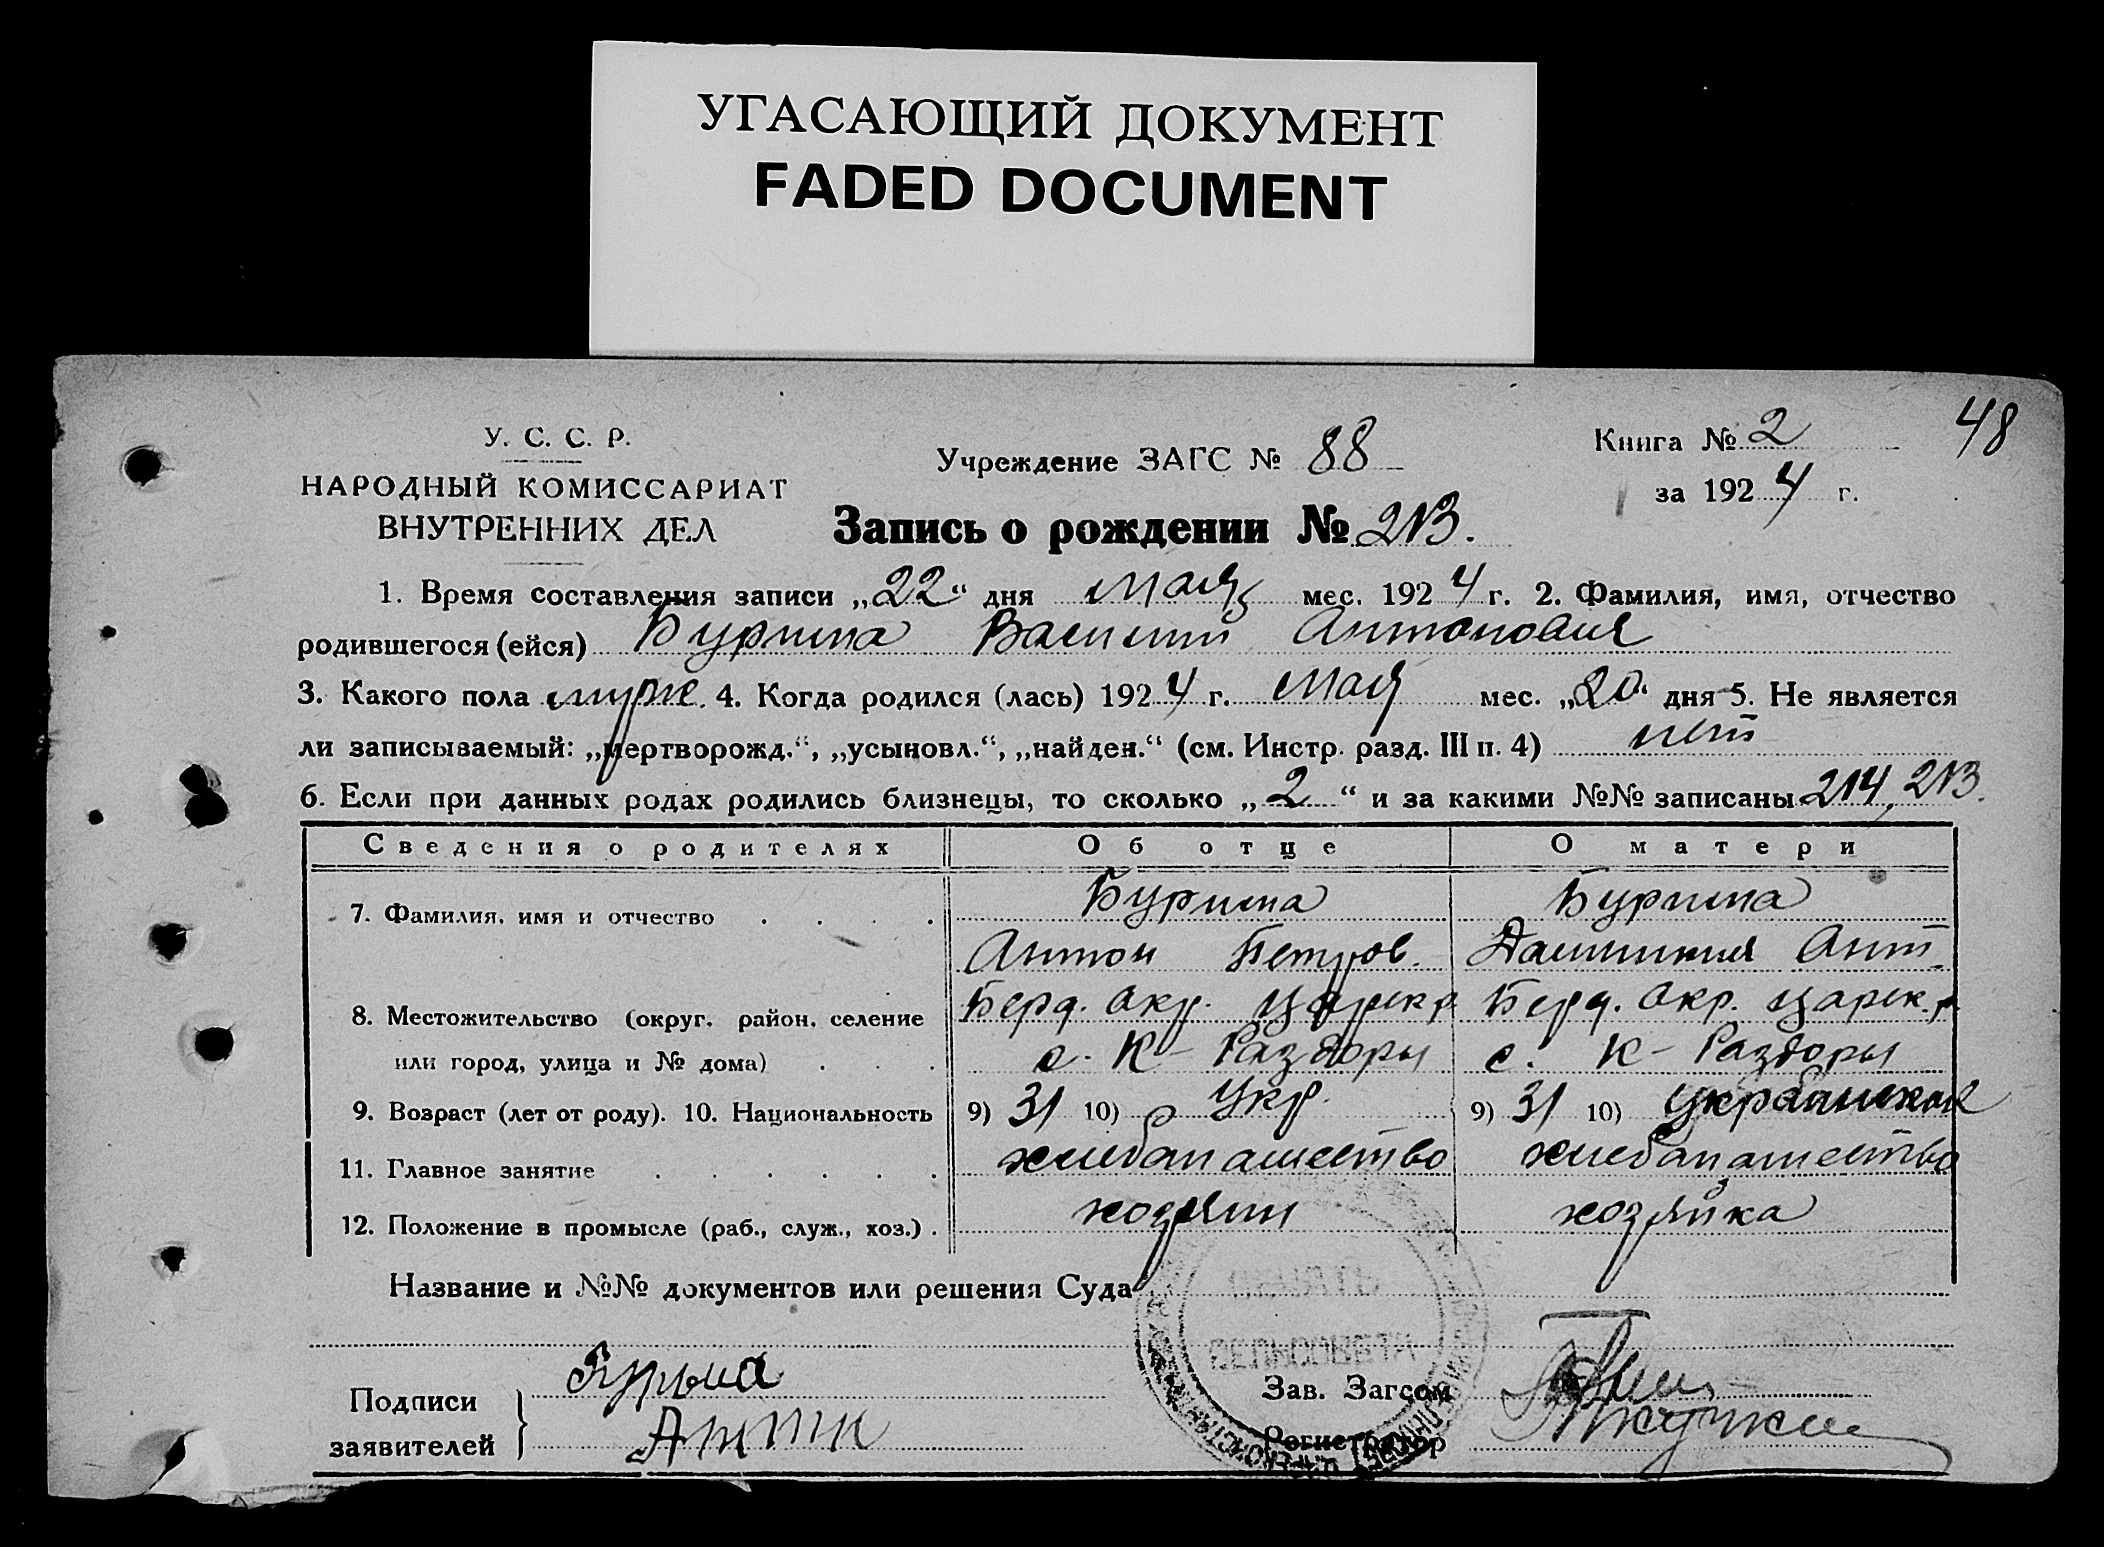 УГАСАЮЩИЙ ДОКУМЕНТ
FADED DOCUMENT
48
У. С. С. Р.
НАРОДНЫЙ КОМИССАРИАТ
ВНУТРЕННИХ ДЕЛ
Учреждение ЗАГС № 88
Книга № 2
за 1924 г.
Запись о рождении № 213.
1. Время составления записи „22“ дня мая мес. 1924 г. 2. Фамилия, имя, отчество
родившегося (ейся) Бурьма Василий Антонович
3. Какого пола муж. 4. Когда родился (лась) 1924 г. мая мес. „20“ дня 5. Не является
ли записываемый: „мертворожд.“, „усыновл.“, „найден.“ (см. Инстр. разд. III п. 4) нет
6. Если при данных родах родились близнецы, то сколько „2“ и за какими №№ записаны 214, 213.
Сведения о родителях Об отце О матери
7. Фамилия, имя и отчество Бурьма Бурьма
Антон Петров. Ант.
8. Местожительство (округ, район, селение Берд. Окр. Царек. р. Берд. Окр. Царек. р.
или город, улица и № дома) с. К-Раздоры с. К-Раздоры
9. Возраст (лет от роду). 10. Национальность 9) 31 10) Укр. 9) 31 10) Украинская
11. Главное занятие хлебопашество хлебопашество
12. Положение в промысле (раб., служ., хоз.) хозяин хозяйка
Название и №№ документов или решения Суда
Подписи
заявителей
Бурьма
Антон
Зав. Загсом
Регистратор
ПЕЧАТЬ
СЕЛЬСОВЕТА